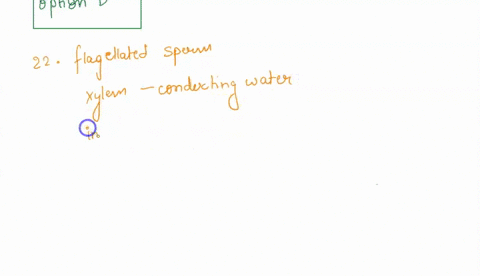 option D
22. flagellated sperm
xylem - conducting water